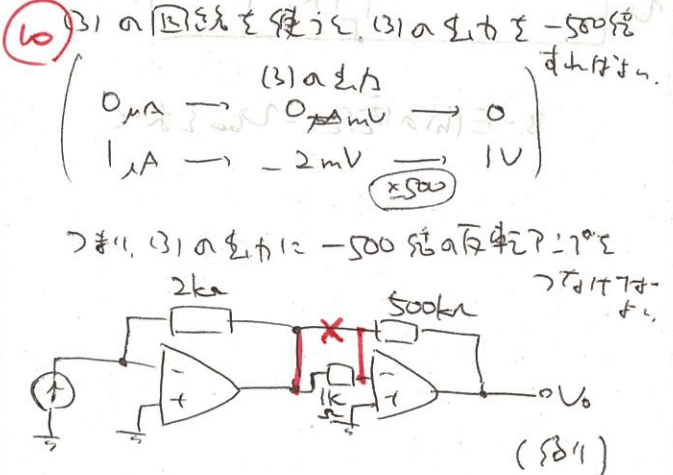 10
(3)の回路を使うと、(3)の出力を-500倍
すればよい。
(3)の出力
0μA → 0mV → 0
1μA → -2mV → 1V
×500
つまり、(3)の出力に-500倍の反転アンプを
つなげばよい。
2kΩ
500kΩ
×
- -
+ 1kΩ +
V₀